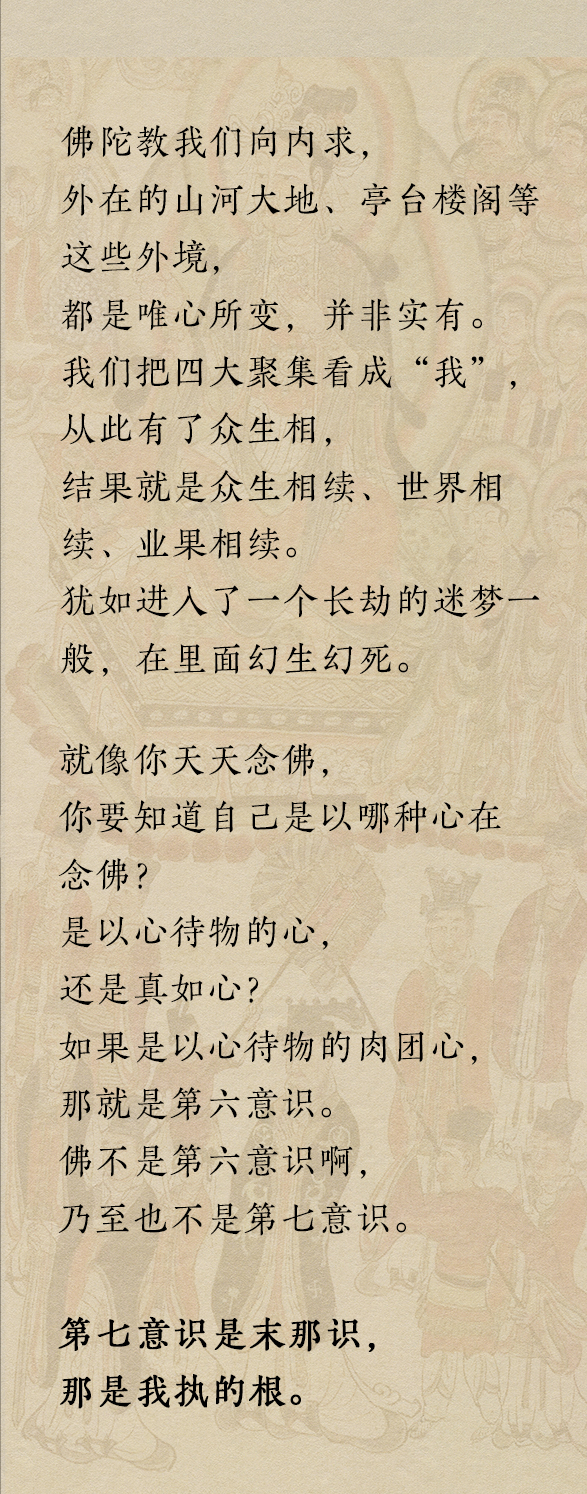 佛陀教我们向内求，
外在的山河大地、亭台楼阁等
这些外境，
都是唯心所变，并非实有。
我们把四大聚集看成“我”，
从此有了众生相，
结果就是众生相续、世界相
续、业果相续。
犹如进入了一个长劫的迷梦一
般，在里面幻生幻死。
就像你天天念佛，
你要知道自己是以哪种心在
念佛？
是以心待物的心，
还是真如心？
如果是以心待物的肉团心，
那就是第六意识。
佛不是第六意识啊，
乃至也不是第七意识。
第七意识是末那识，
那是我执的根。